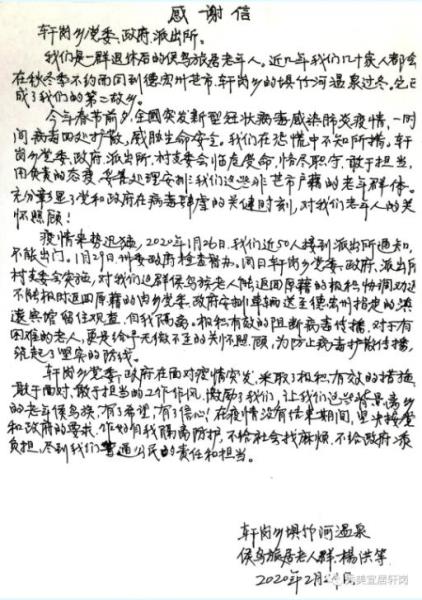 感谢信
轩岗乡党委、政府、派出所。
我们是一群退休后的候鸟旅居老年人。近几年我们几十家人都会
在秋冬季不约而同到德宏州芒市轩岗乡的坝竹河温泉过冬。它已
成了我们的第二故乡。
今年春节前夕,全国突发新型冠状病毒感染肺炎疫情,一时
间病毒四处扩散,威胁生命安全。我们在恐慌中不知所措。轩
岗乡党委、政府、派出所、村支委会临危受命,恪尽职守,敢于担当,
用负责的态度,妥善处理安排了我们这些非芒市户籍的老年群体。
充分彰显了党和政府在病毒肆虐的关键时刻,对我们老年人的关
怀照顾!
疫情来势迅猛,2020年1月26日,我们近50人接到派出所通知,
不能出门。1月29日,州委政府检查督办。同日轩岗乡党委、政府、派出所
村支委会实施,对我们这群候鸟族老人能返回原籍的积极协调,对达
不能及时返回原籍的由乡党委、政府安排车辆送至德宏州指定的
宾馆留住观查,自我隔离。积极有效的阻断病毒传播,对于有
困难的老人,更是给予无微不至的关怀照顾,为防止病毒扩散传播,
筑起了坚实的防线。
轩岗乡党委、政府在面对疫情突发,采取了积极、有效的措施,
敢于面对、敢于担当的工作作风,激励了我们,让我们这些背景离乡
的老年候鸟族,有了希望,有了信心!在疫情没有结束期间,坚决按党
和政府的要求,作好自我隔离防护,不给社会找麻烦,不给政府添
负担,尽到我们普通公民的责任和担当。
轩岗乡坝竹河温泉
候鸟旅居老人群:杨洪等
2020年2月 日
美宜居轩岗